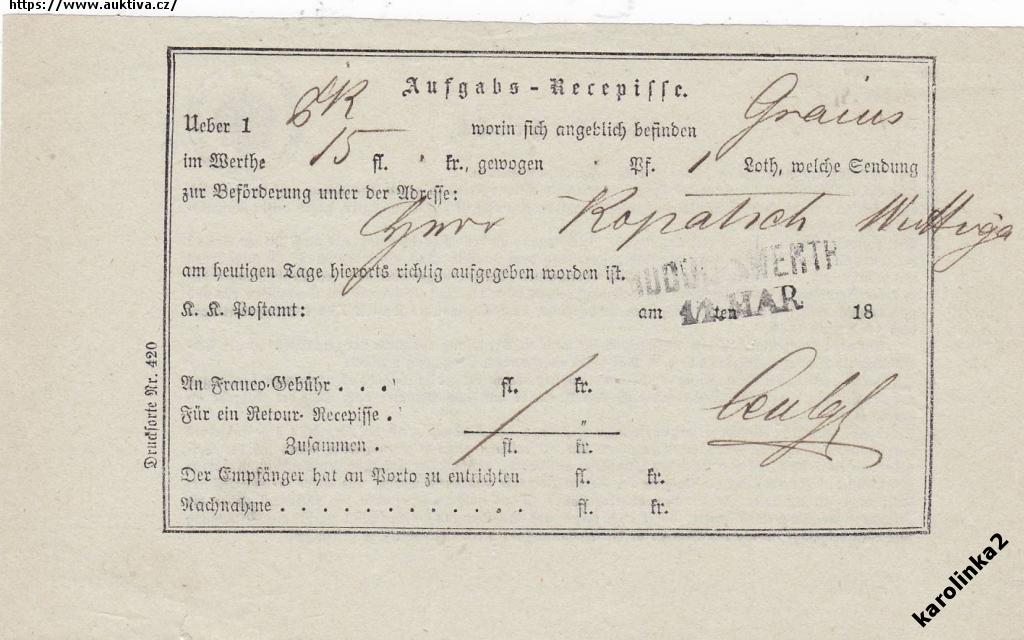 https://www.auktiva.cz/
Aufgabs-Recepisse.
Ueber 1 worin sich angeblich befinden
im Werthe 15 fl. kr., gewogen Pf. 1 Loth, welche Sendung
zur Beförderung unter der Adresse:
Herr Kopatsch
am heutigen Tage hierorts richtig aufgegeben worden ist.
RUDOLFSWERTH
K. K. Postamt: am ten 18
14 MAR
An Franco-Gebühr . . . fl. kr.
Für ein Retour-Recepisse . "
Zusammen . fl. kr.
Der Empfänger hat an Porto zu entrichten fl. kr.
Nachnahme . . . . . . . . . . . . fl. kr.
Drucksorte Nr. 420
karolinka2